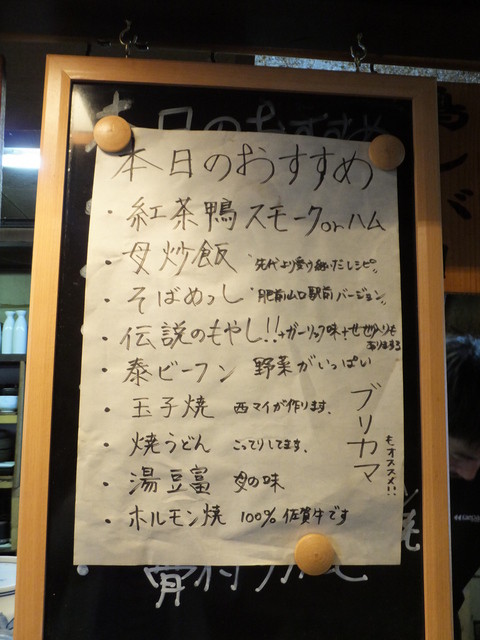 本日のおすすめ
・紅茶鴨スモークorハム
・母炒飯 先代より受け継いだレシピ。
・そばめっし 肥前山口駅前バージョン。
・伝説のもやし!!+ガーリック味+せせり入りも
あります
・泰ビーフン 野菜がいっぱい
・玉子焼 西マイが作ります。
・焼うどん こってりしてます。
・湯豆富 母の味
・ホルモン焼 100%佐賀牛です
ブリカマ
もオススメ!!